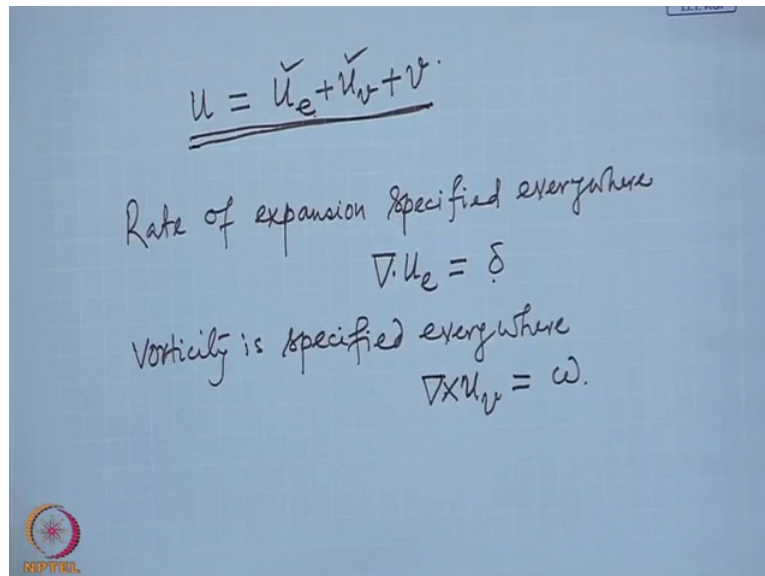 u = u_e + u_v + v.
Rate of expansion specified everywhere
∇·u_e = δ
Vorticity is specified everywhere
∇×u_v = ω.
NPTEL